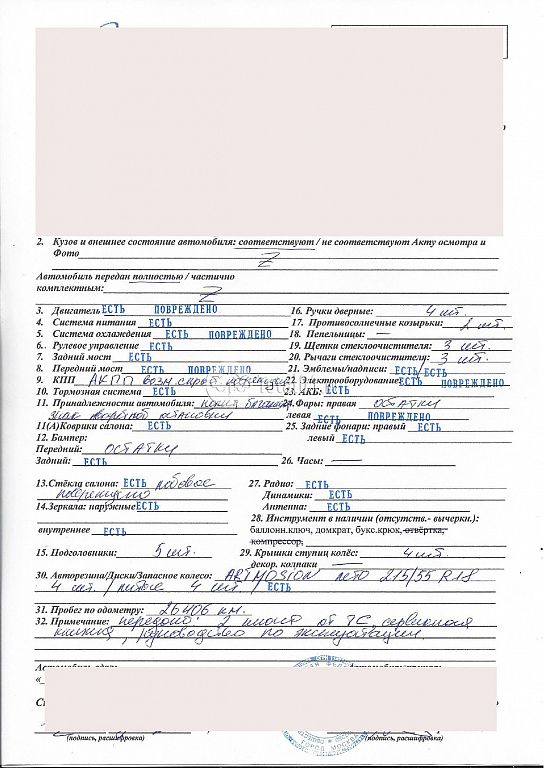 2. Кузов и внешнее состояние автомобиля: соответствуют / не соответствуют Акту осмотра и
Фото Z
Автомобиль передан полностью / частично
комплектным: Z
3. Двигатель ЕСТЬ ПОВРЕЖДЕНО
4. Система питания ЕСТЬ
5. Система охлаждения ЕСТЬ ПОВРЕЖДЕНО
6. Рулевое управление ЕСТЬ
7. Задний мост ЕСТЬ
8. Передний мост ЕСТЬ ПОВРЕЖДЕНО
9. КПП АКПП возм. скрыт.
10. Тормозная система ЕСТЬ
11. Принадлежности автомобиля:
знак аварийной остановки
11(А)Коврики салона: ЕСТЬ
12. Бампер:
Передний: ОСТАТКИ
Задний: ЕСТЬ
13.Стёкла салона: ЕСТЬ лобовое
повреждено
14.Зеркала: наружные ЕСТЬ
внутреннее ЕСТЬ
15. Подголовники: 5 шт.
16. Ручки дверные: 4 шт.
17. Противосолнечные козырьки: 2 шт.
18. Пепельницы: —
19. Щетки стеклоочистителя: 3 шт.
20. Рычаги стеклоочистителя: 3 шт.
21. Эмблемы/надписи ЕСТЬ/ЕСТЬ
22. Электрооборудование ЕСТЬ ПОВРЕЖДЕНО
23. АКБ: ЕСТЬ
24.Фары: правая ОСТАТКИ
левая ЕСТЬ ПОВРЕЖДЕНО
25. Задние фонари: правый ЕСТЬ
левый ЕСТЬ
26. Часы: —
27. Радио: ЕСТЬ
Динамики: ЕСТЬ
Антенна ЕСТЬ
28. Инструмент в наличии (отсутств.- вычеркн.):
баллонн.ключ, домкрат, букс.крюк, отвёртка,
компрессор,
29. Крышки ступиц колёс: 4 шт.
декор. колпаки —
30. Авторезина/Диски/Запасное колесо: ARTMOSION лето 215/55 R18
4 шт. / литые 4 шт. / ЕСТЬ
31. Пробег по одометру: 26406 км.
32. Примечание: передано: 2 ключа от ТС, сервисная
книжка, руководство по эксплуатации.
(подпись, расшифровка)
(подпись, расшифровка)